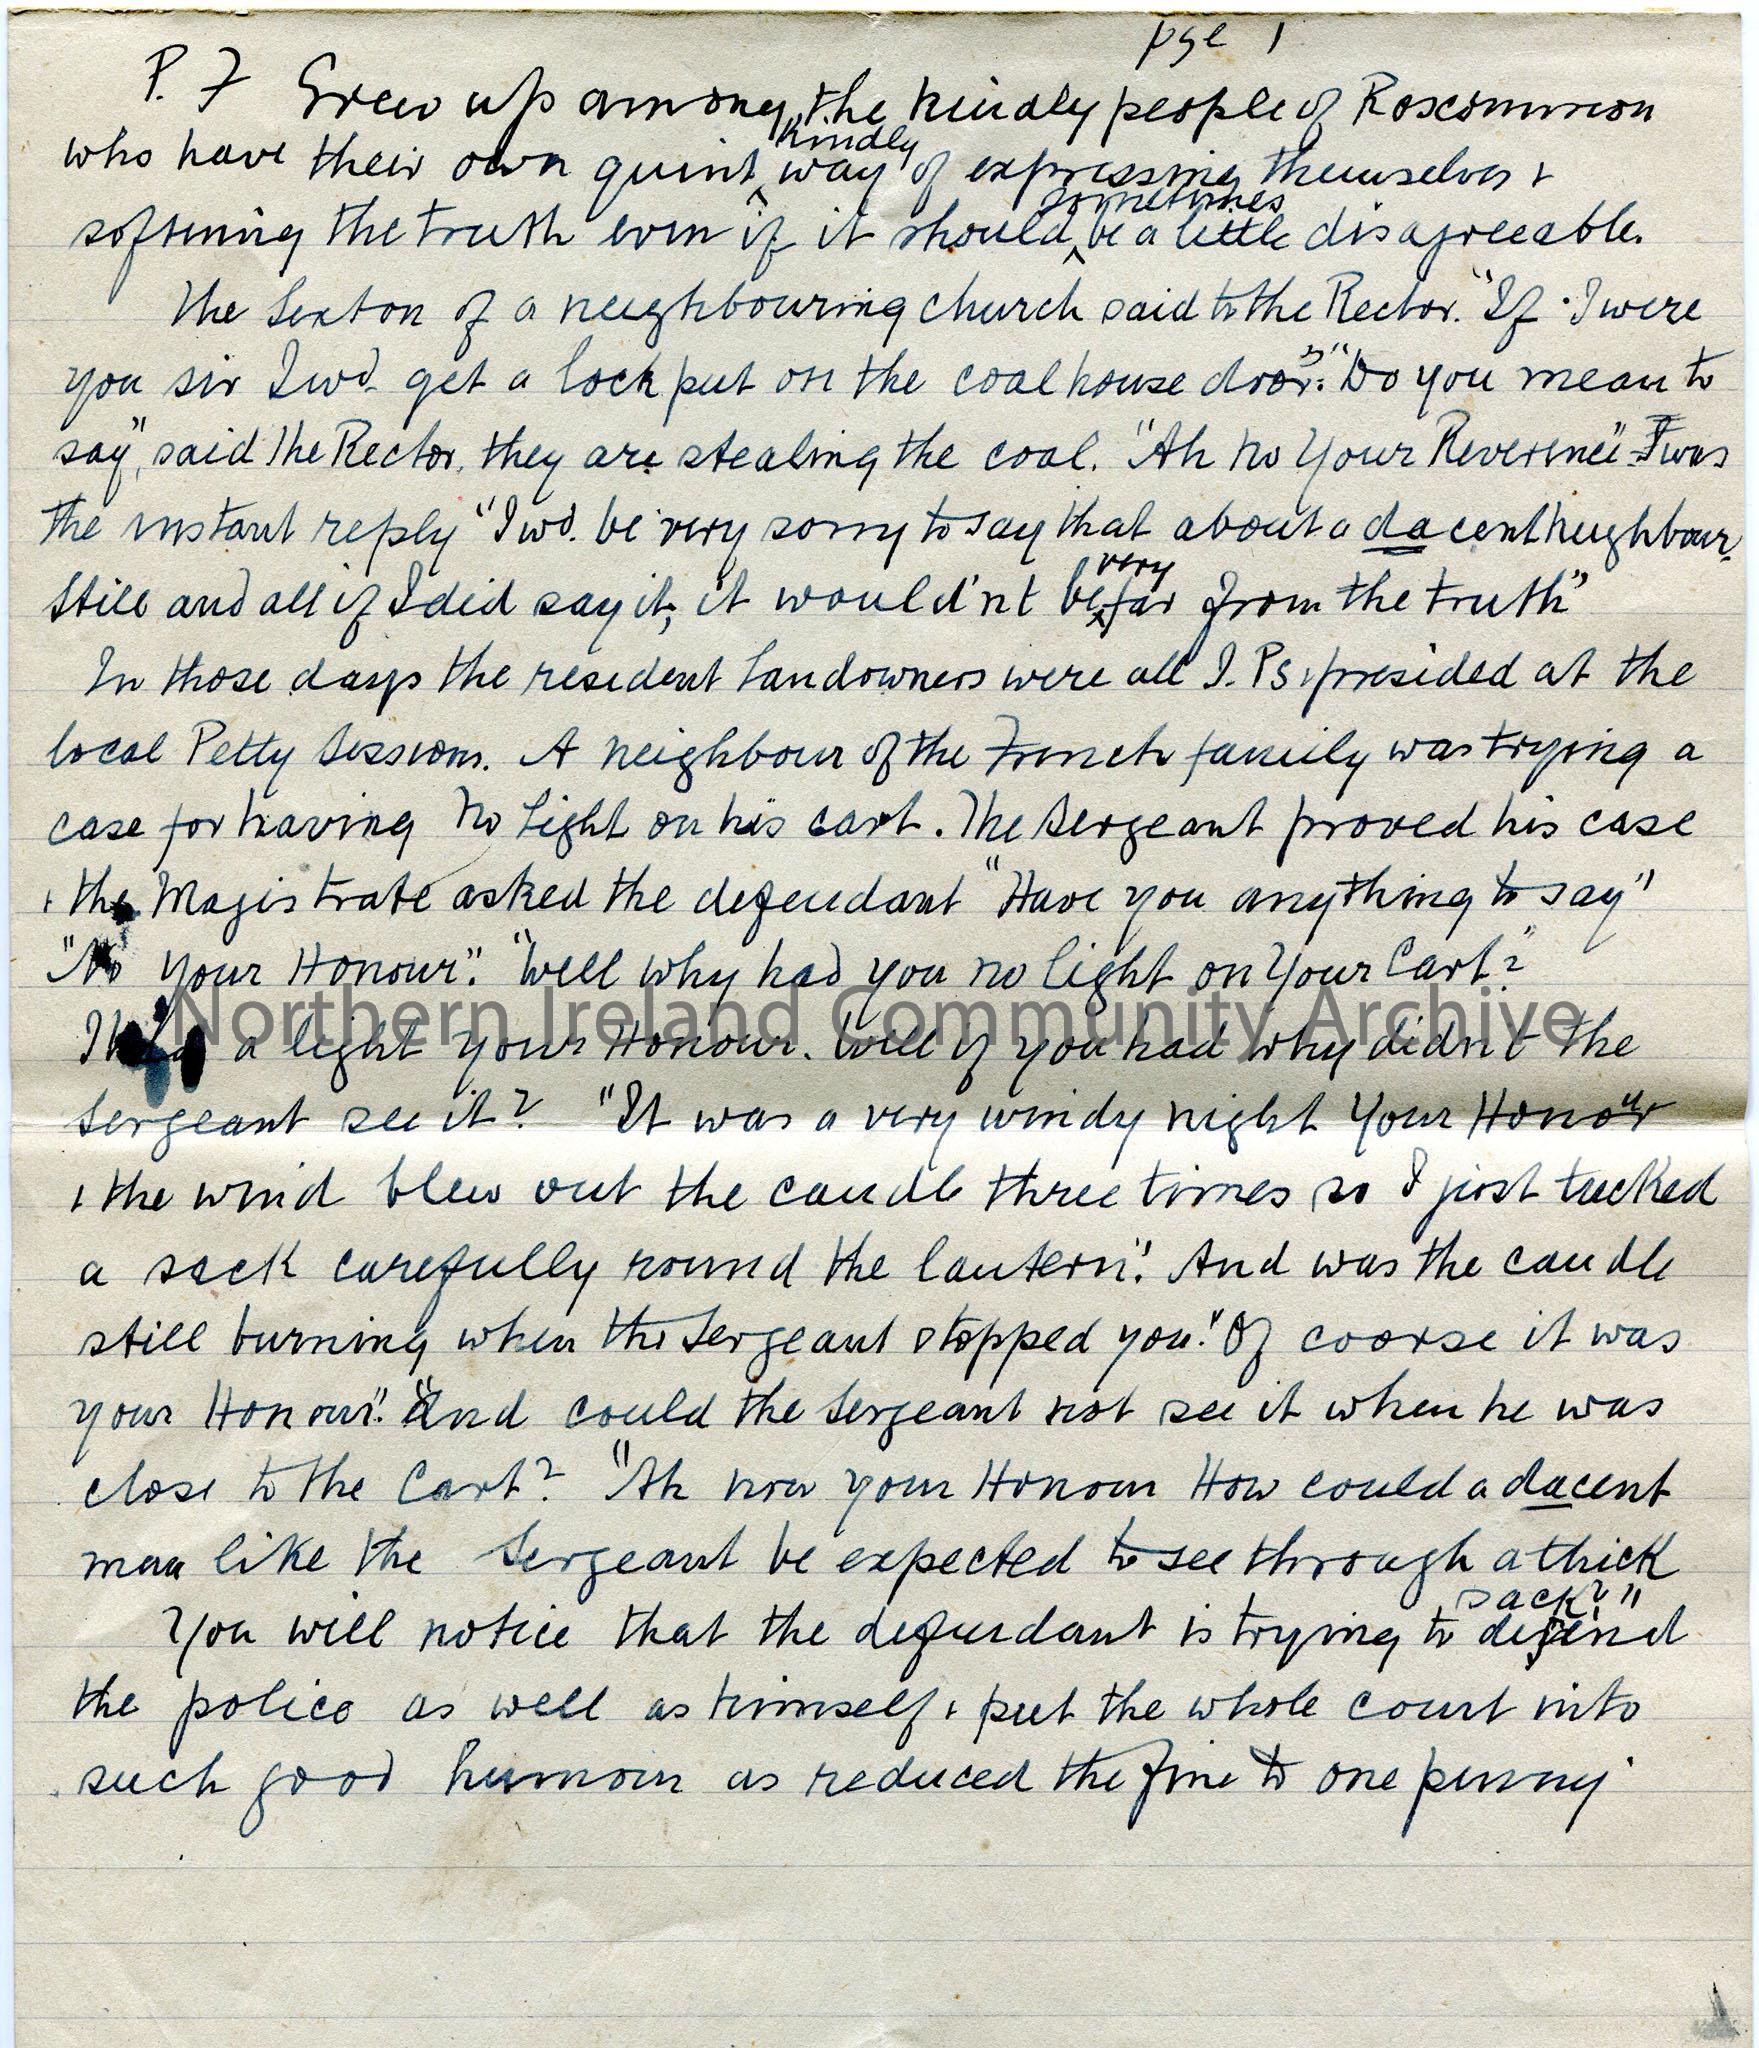 pge 1
P. F Grew up among the kindly people of Roscommon
who have their own quint kindly way of expressing themselves &
softening the truth even if it should sometimes be a little disagreeable.
The Sexton of a neighbouring church said to the Rector. "If I were
you sir I wd. get a lock put on the coal house door." "Do you mean to
say", said the Rector, they are stealing the coal. "Ah no Your Reverence" Twas
the instant reply "I wd. be very sorry to say that about a dacent neighbour.
Still and all if I did say it, it would'nt be very far from the truth"
In those days the resident Landowners were all J. Ps & presided at the
local Petty Sessions. A neighbour of the French family was trying a
case for having no light on his cart. The Sergeant proved his case
& the Magistrate asked the defendant "Have you anything to say"
"No Your Honour". "Well why had you no light on Your Cart?"
Northern Ireland Community Archive
I had a light your Honour. Well if you had why didn't the
Sergeant see it? "It was a very windy night Your Honour
& the wind blew out the candle three times so I just tucked
a sack carefully round the lantern". And was the candle
still burning when the Sergeant stopped you." Of coorse it was
your Honour". "And could the Sergeant not see it when he was
close to the Cart? "Ah now your Honour How could a dacent
man like the Sergeant be expected to see through a thick
sack?"
You will notice that the defendant is trying to defend
the police as well as himself & put the whole court into
such good humour as reduced the fine to one penny